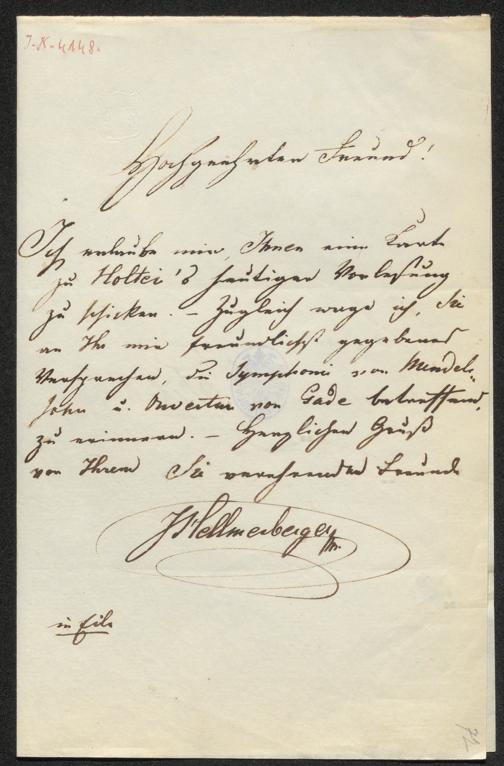 I.N.-4148.
Hochgeehrter Freund!
Ich erlaube mir, Ihnen eine Karte
zu Holtei's heutiger Vorlesung
zu schicken. – Zugleich wage ich, Sie
an Ihr mir freundlichst gegebenes
Versprechen, die Symphonie von Mendels-
sohn u. Ouvertur von Gade betreffend,
zu erinnern. – Herzlichen Gruß
von Ihrem Sie verehrenden Freunde
J Hellmesberger
in Eile
72